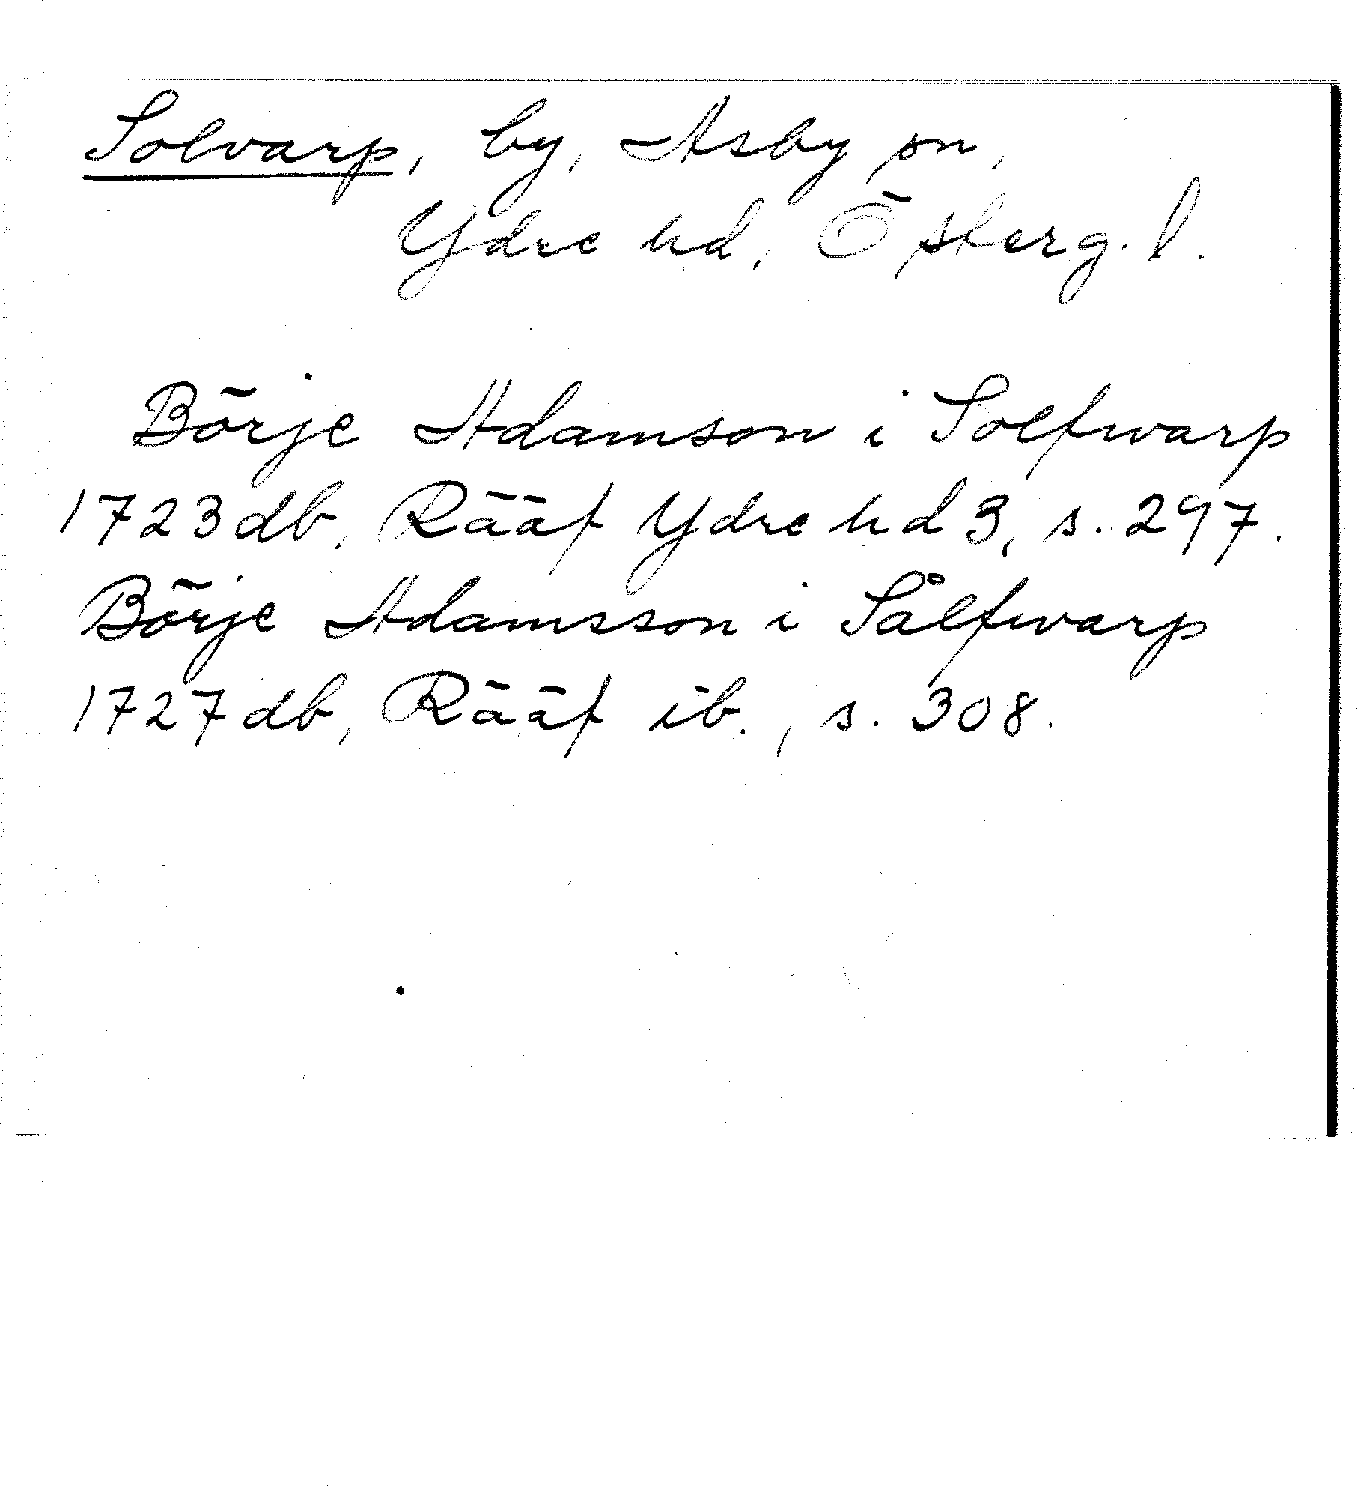 Solvarp, by, Asby sn,
Ydre hd, Österg. l.
Börje Adamson i Solfwarp
1723 db, Rääf Ydre hd 3, s. 297.
Börje Adamsson i Sålfwarp
1727 db, Rääf ib., s. 308.